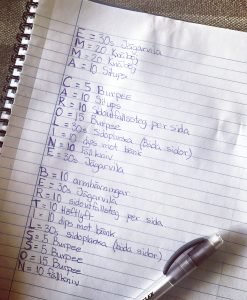 E = 30s Jägarvila
M = 20 Knäböj
M = 20 Knäböj
A = 10 Situps
C = 5 Burpee
A = 10 Situps
R = 10 sidoutfallssteg per sida
O = 15 Burpee
L = 30s sidoplanka (båda sidor)
I = 10 dips mot bänk
N = 10 fällkniv
E = 30s Jägarvila
B = 10 armhävningar
E = 30s Jägarvila
R = 10 sidoutfallssteg per sida
T = 10 Höftlyft
I = 10 dips mot bänk
L = 30s sidoplanka (båda sidor)
S = 5 Burpee
S = 5 Burpee
O = 15 Burpee
N = 10 fällkniv